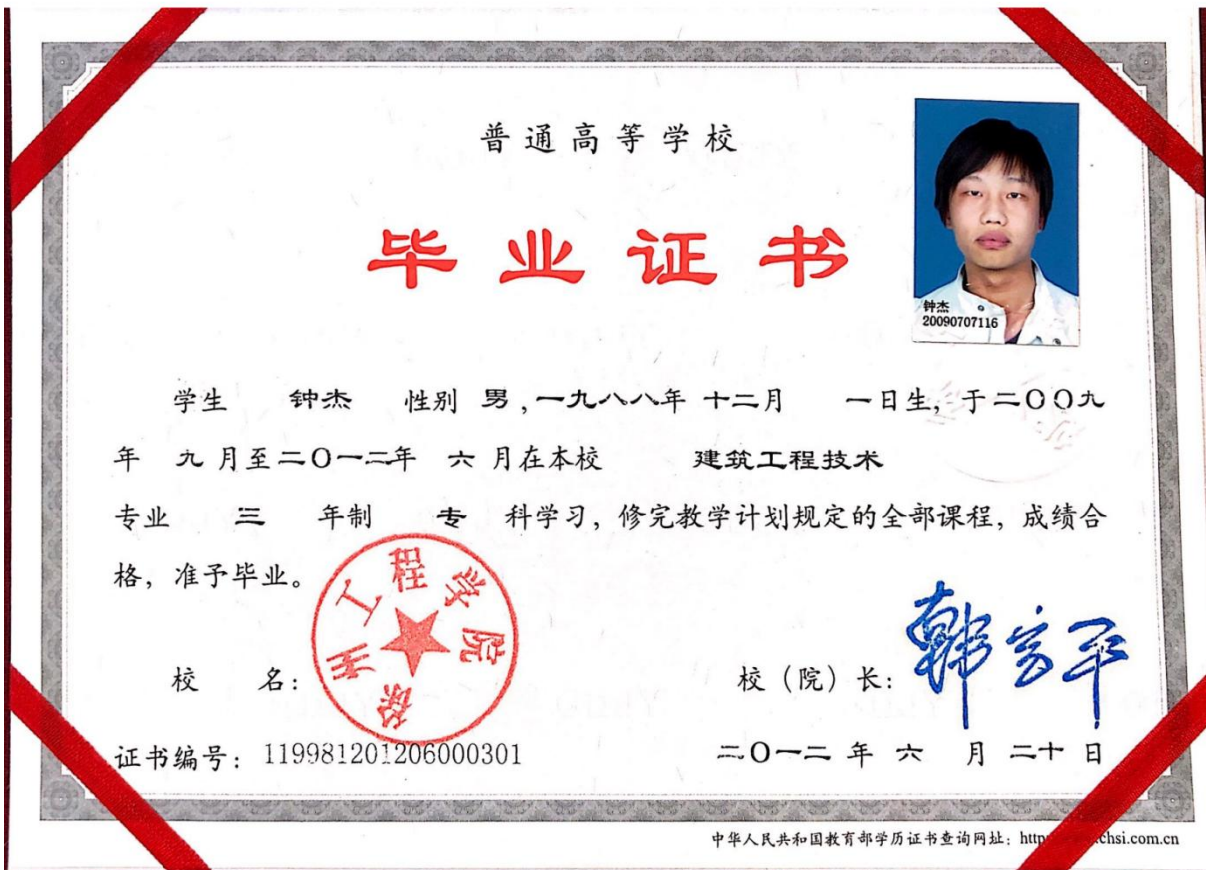 普通高等学校
毕业证书
钟杰
20090707116
学生 钟杰 性别 男，一九八八年 十二月 一日生，于二〇〇九
年 九 月至二〇一二年 六 月在本校 建筑工程技术
专业 三 年制 专 科学习，修完教学计划规定的全部课程，成绩合
格，准予毕业。
徐州工程学院
校 名：
校（院）长：
证书编号：119981201206000301
二〇一二 年 六 月 二十 日
中华人民共和国教育部学历证书查询网址：http chsi.com.cn